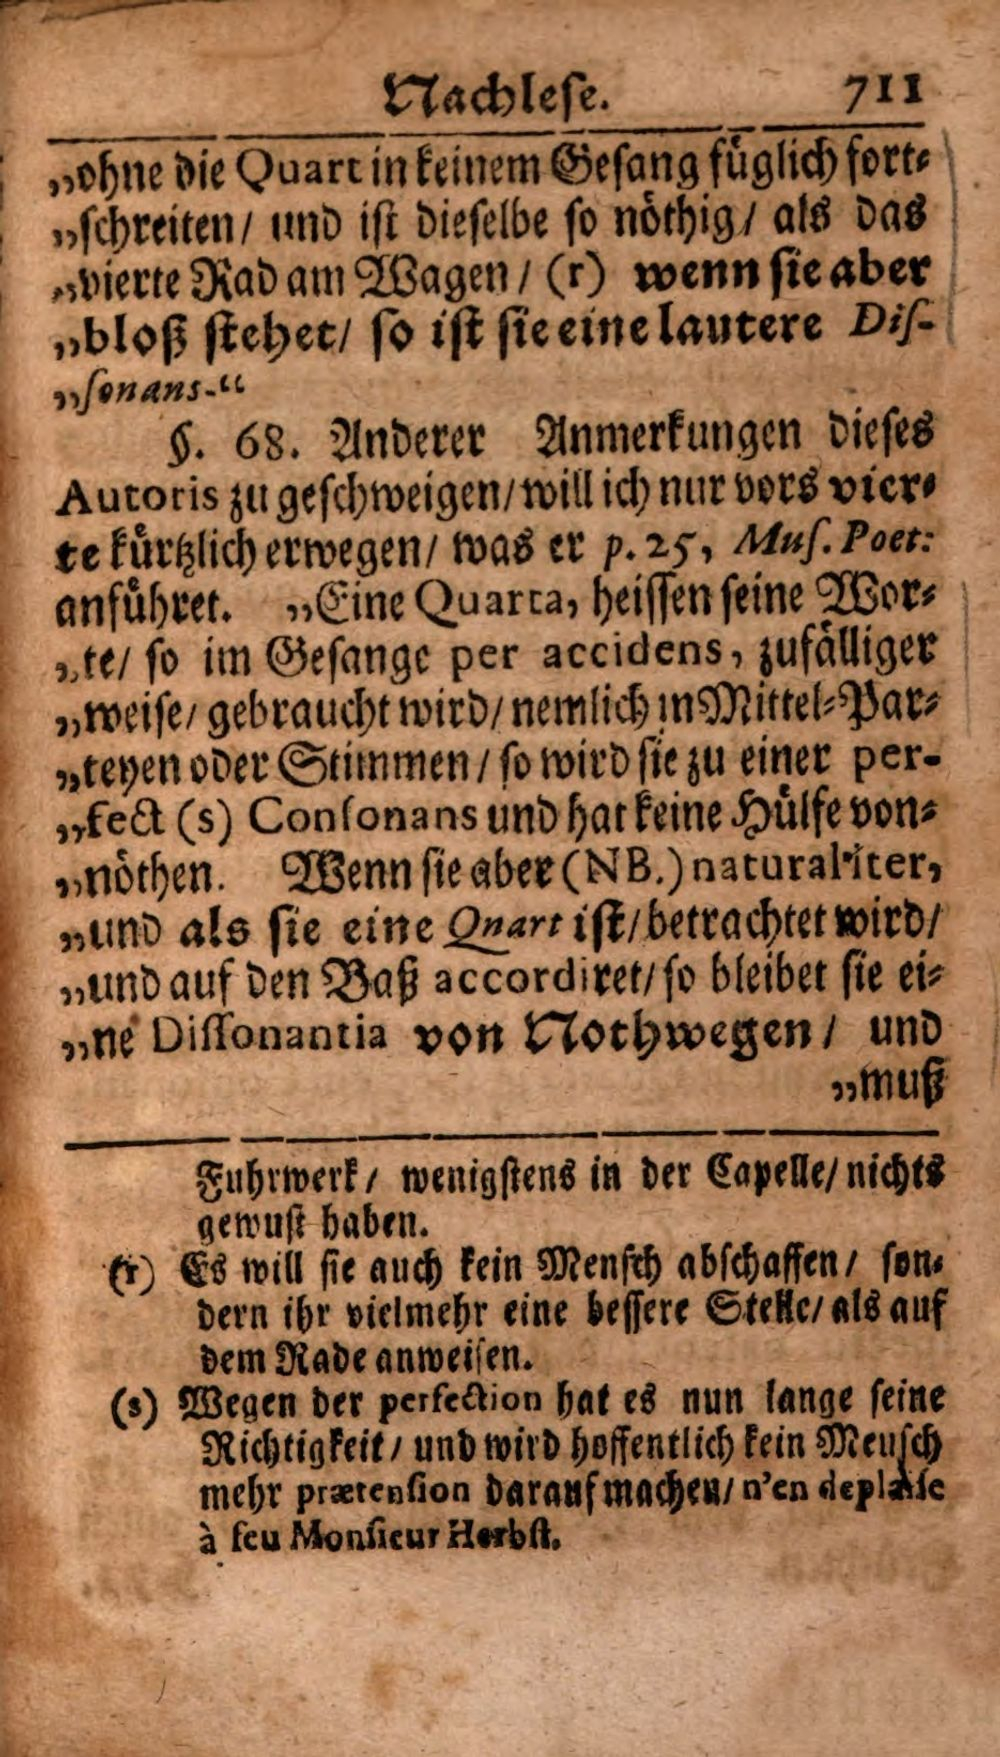 Nachlese. 711
„ohne die Quart in keinem Gesang füglich fort-
„schreiten/ und ist dieselbe so nöthig/ als das
„vierte Rad am Wagen/ (r) wenn sie aber
„bloß stehet/ so ist sie eine lautere Dis-
„sonans.“
§. 68. Anderer Anmerkungen dieses
Autoris zu geschweigen/ will ich nur vors vier-
te kürtzlich erwegen/ was er p. 25, Mus. Poet:
anführet. „Eine Quarta, heissen seine Wor-
„te/ so im Gesange per accidens, zufälliger
„weise/ gebraucht wird/ nemlich in Mittel-Par-
„teyen oder Stimmen/ so wird sie zu einer per-
„fect (s) Consonans und hat keine Hülfe von-
„nöthen. Wenn sie aber (NB.) naturaliter,
„und als sie eine Quart ist/ betrachtet wird/
„und auf den Baß accordiret/ so bleibet sie ei-
„ne Dissonantia von Nothwegen/ und
„muß
Fuhrwerk/ wenigstens in der Capelle/ nichts
gewust haben.
(r) Es will sie auch kein Mensch abschaffen/ son-
dern ihr vielmehr eine bessere Stelle/ als auf
dem Rade anweisen.
(s) Wegen der perfection hat es nun lange seine
Richtigkeit/ und wird hoffentlich kein Mensch
mehr prætension darauf machen/ n'en deplaise
à feu Monsieur Herbst.